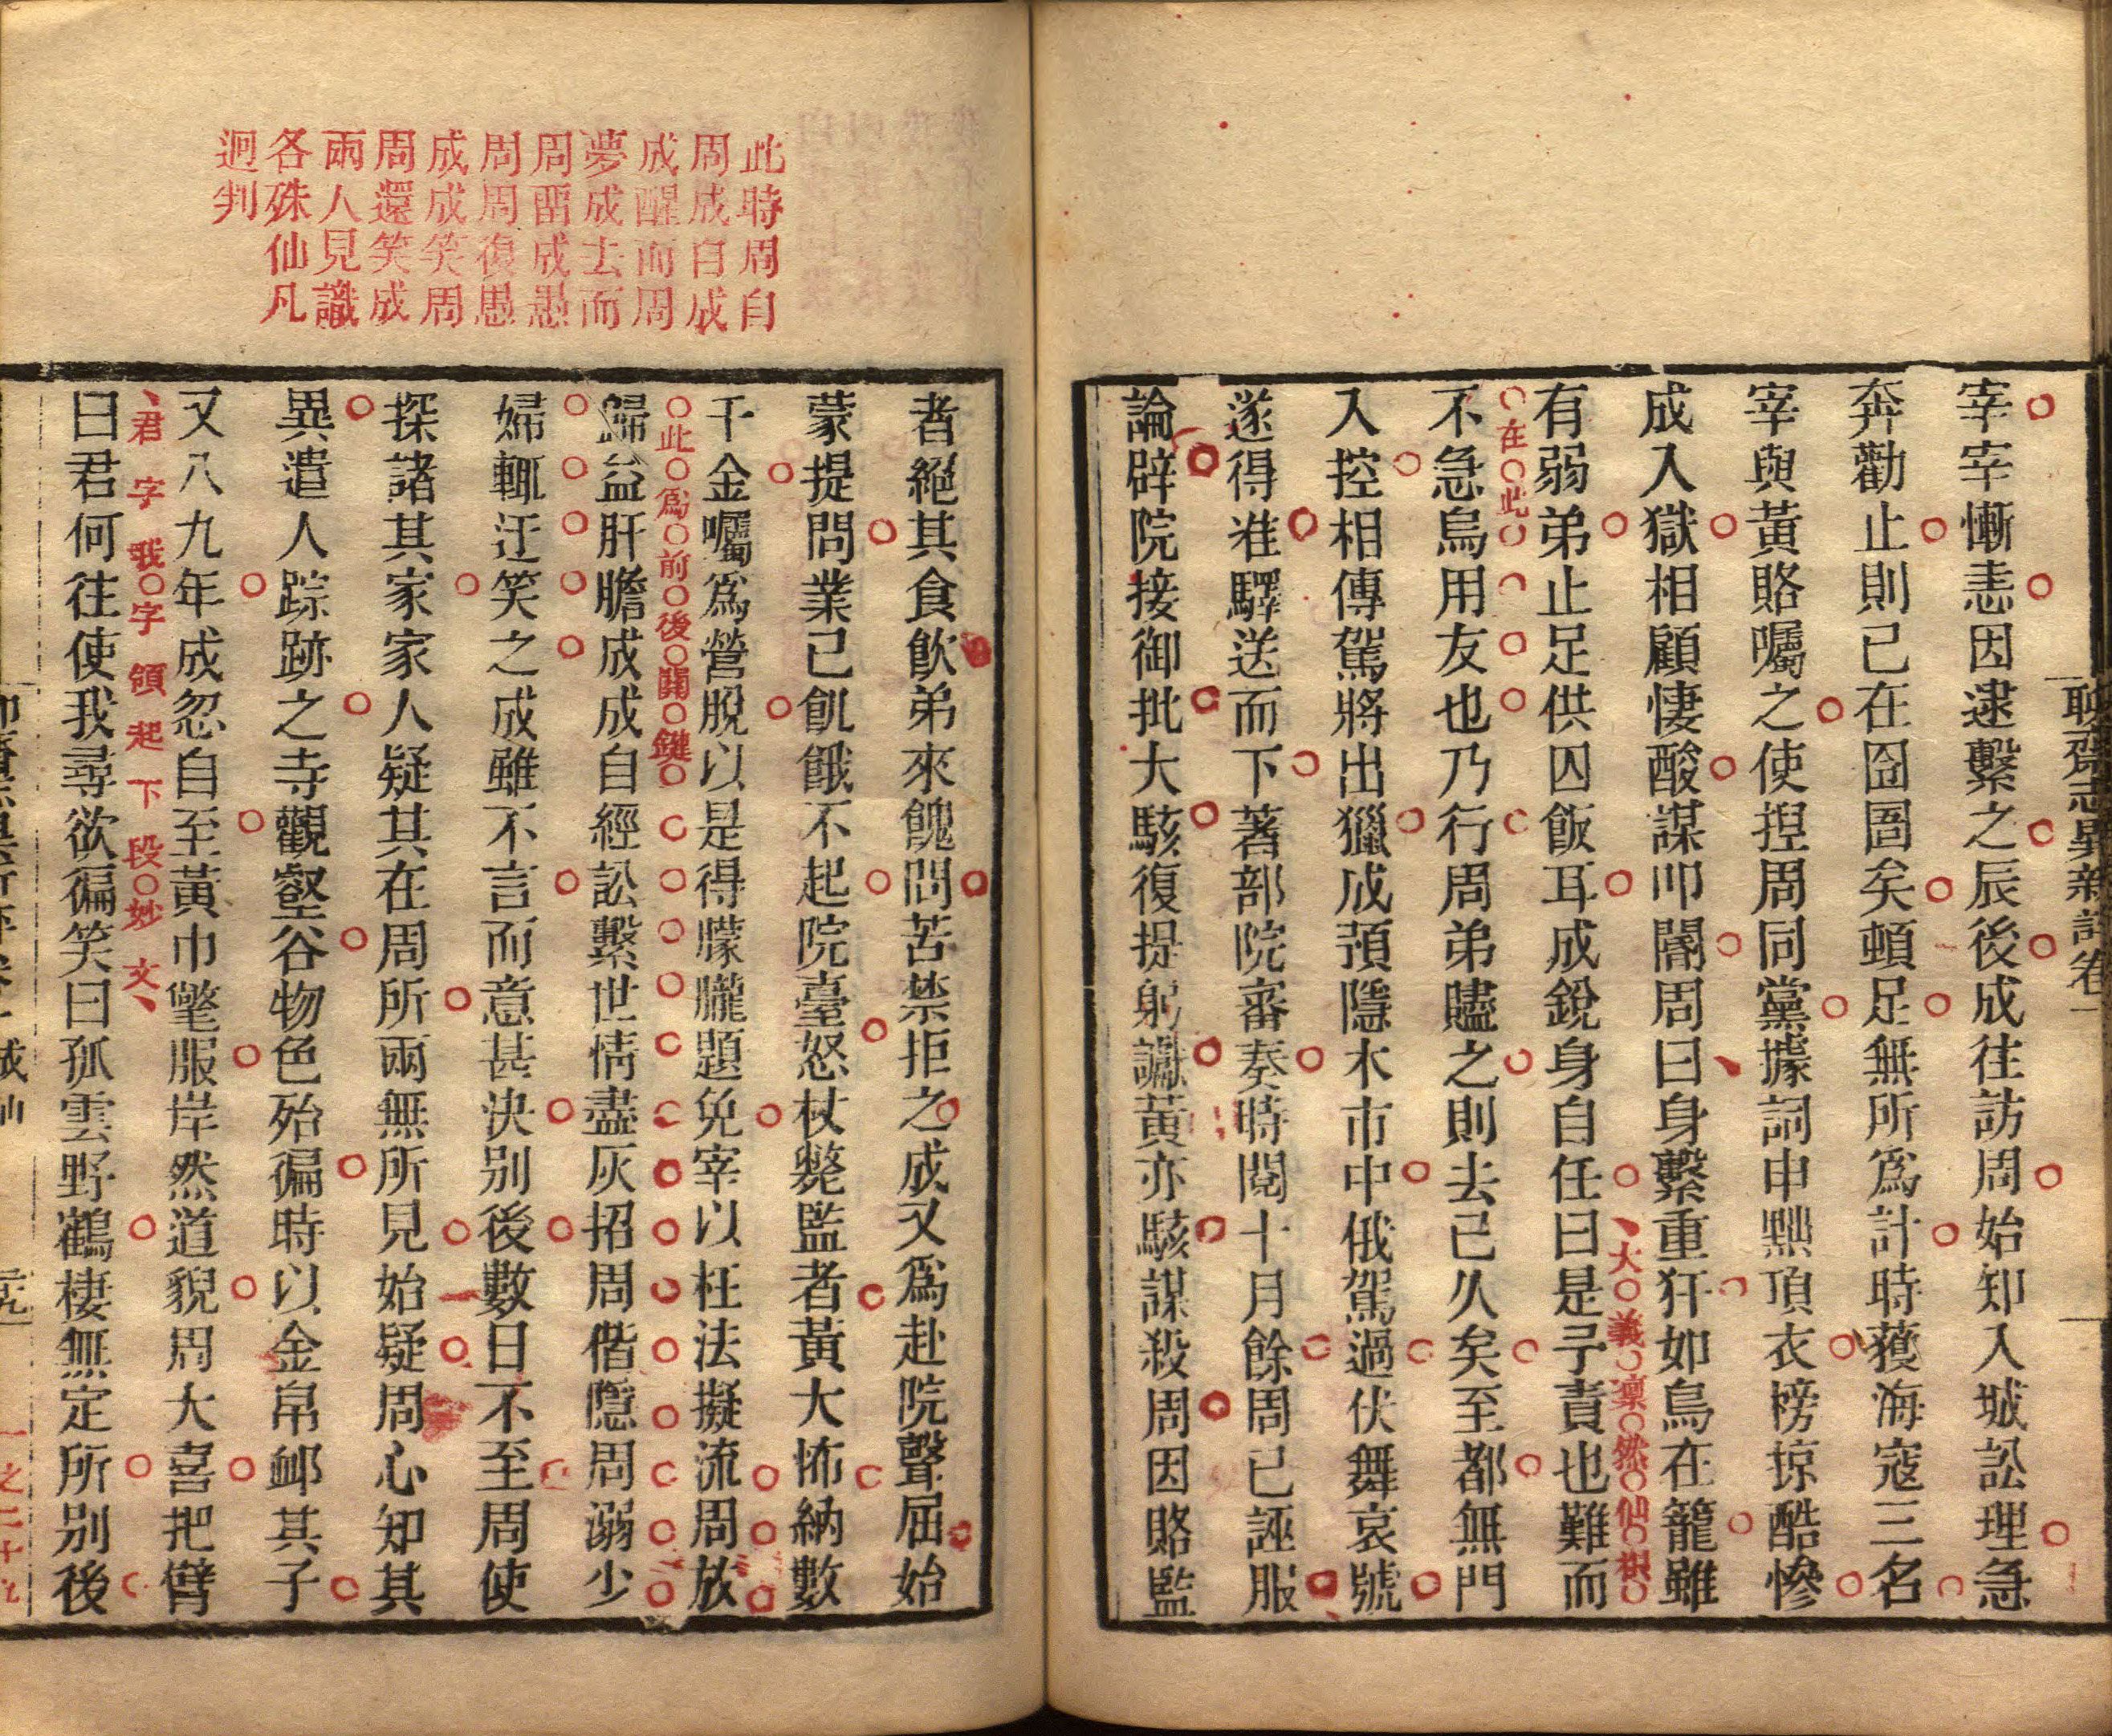 聊齋志異新評卷一
宰宰慚恚因逮繫之辰後成往訪周始知入城訟理急
奔勸止則已在囹圄矣頓足無所爲計時獲海寇三名
宰與黃賂囑之使捏周同黨據詞申黜頂衣榜掠酷慘
成入獄相顧悽酸謀叩闇周曰身繫重犴如鳥在籠雖
有弱弟止足供囚飯耳成銳身自任曰是予責也難而
大義凛然仙根
不急烏用友也乃行周弟贐之則去已久矣至都無門
在此
入控相傳駕將出獵成預隱木市中俄駕過伏舞哀號
遂得准驛送而下著部院審奏時閱十月餘周已誣服
論辟院接御批大駭復提躬讞黃亦駭謀殺周因賂監
此時周自
周成自成
成醒而周
夢成去而
周畱成愚
周周復愚
成成笑周
周還笑成
兩人見識
各殊仙凡
迥判
者絕其食飮弟來餽問苦禁拒之成又爲赴院聲屈始
蒙提問業已飢餓不起院臺怒杖斃監者黃大怖納數
千金囑爲營脫以是得朦朧題免宰以枉法擬流周放
此爲前後關鍵
歸益肝膽成成自經訟繫世情盡灰招周偕隱周溺少
婦輒迂笑之成雖不言而意甚決别後數日不至周使
探諸其家家人疑其在周所兩無所見始疑周心知其
異遣人踪跡之寺觀壑谷物色殆徧時以金帛衈其子
又八九年成忽自至黃巾氅服岸然道貌周大喜把臂
君字我字領起下段妙文
曰君何往使我尋欲徧笑曰孤雲野鶴棲無定所别後
一之二十九